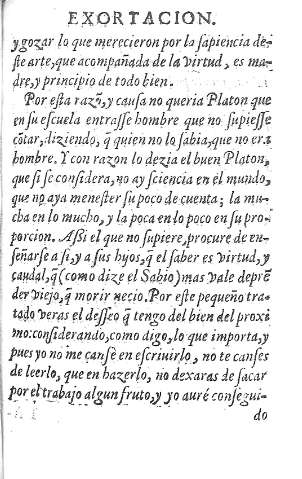 EXORTACION.
y gozar lo que merecieron por la sapiencia de-
ste arte, que acompañada de la virtud, es ma-
dre, y principio de todo bien.
Por esta razõ, y causa no queria Platon que
en su escuela entrasse hombre que no supiesse
cõtar, diziendo, q̃ quien no lo sabia, que no era
hombre. Y con razon lo dezia el buen Platon,
que si se considera, no ay sciencia en el mundo,
que no aya menester su poco de cuenta; la mu-
cha en lo mucho, y la poca en lo poco en su pro-
porcion. Assi el que no supiere, procure de en-
señarse a si, y a sus hyos, q̃ el saber es virtud, y
caudal, q̃ (como dize el Sabio) mas vale deprẽ-
der viejo, q̃ morir necio. Por este pequeño tra-
tado veras el desseo q̃ tengo del bien del proxi-
mo: considerando, como digo, lo que importa, y
pues yo no me cansè en escriuirlo, no te canses
de leerlo, que en hazerlo, no dexaras de sacar
por el trabajo algun fruto, y yo aurè consegui-
do